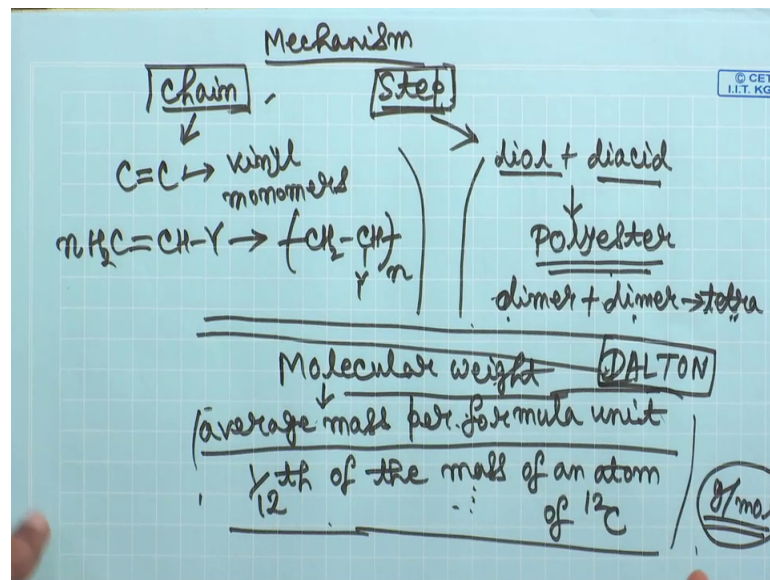 Mechanism
Chain , Step
© CET
I.I.T. KG
C=C → vinyl
monomers
diol + diacid
nH₂C=CH-Y → (CH₂-CH)n
Y
Polyester
dimer + dimer → tetra
Molecular weight DALTON
average mass per formula unit
1/12 th of the mass of an atom
of ¹²C
g/mo